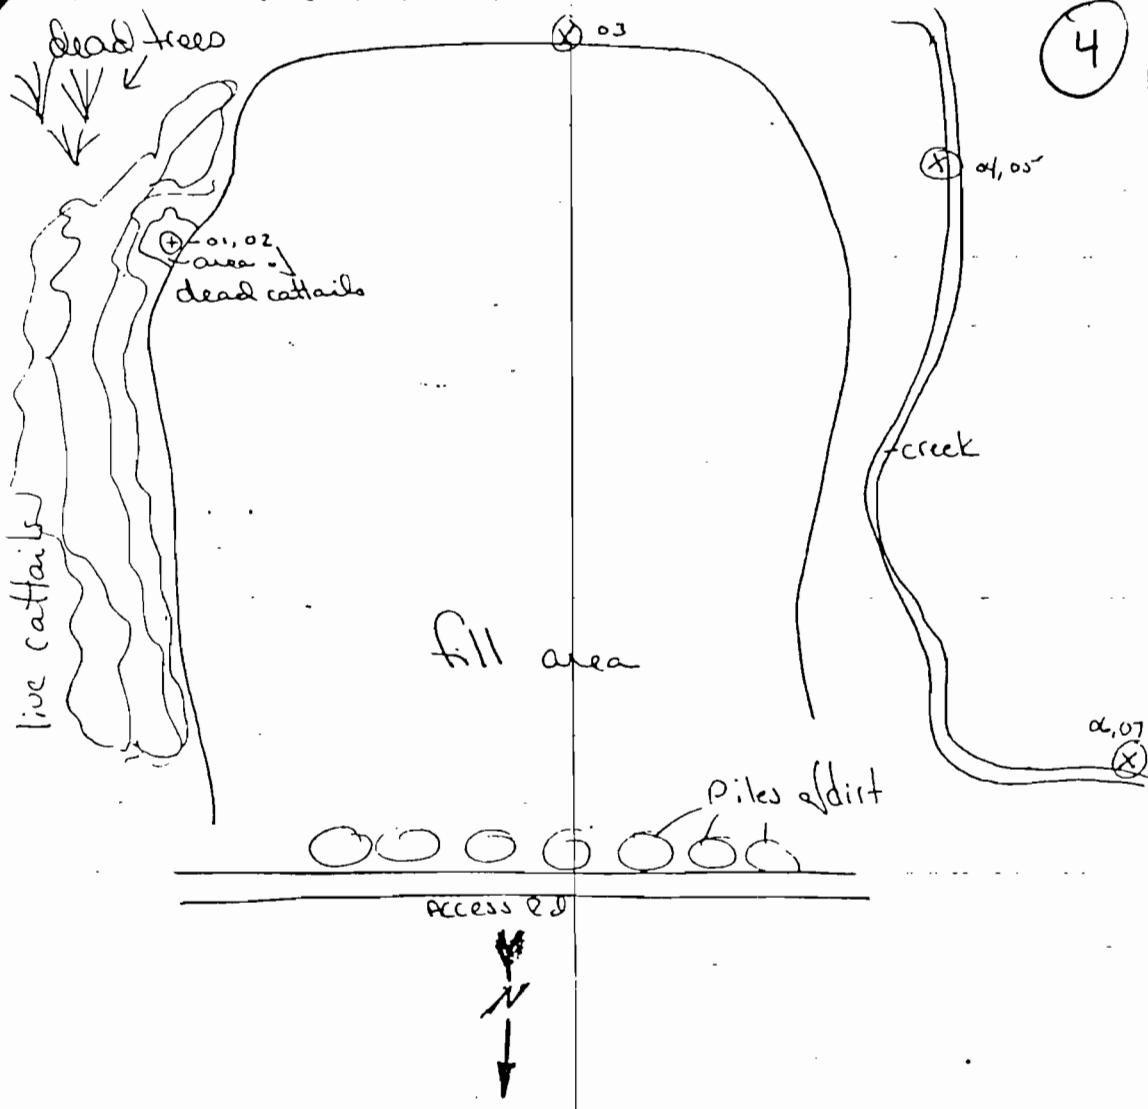 dead trees
03
4
04,05
01,02
area of
dead cattails
creek
live cattails
fill area
06,07
Piles of dirt
Access Rd
N